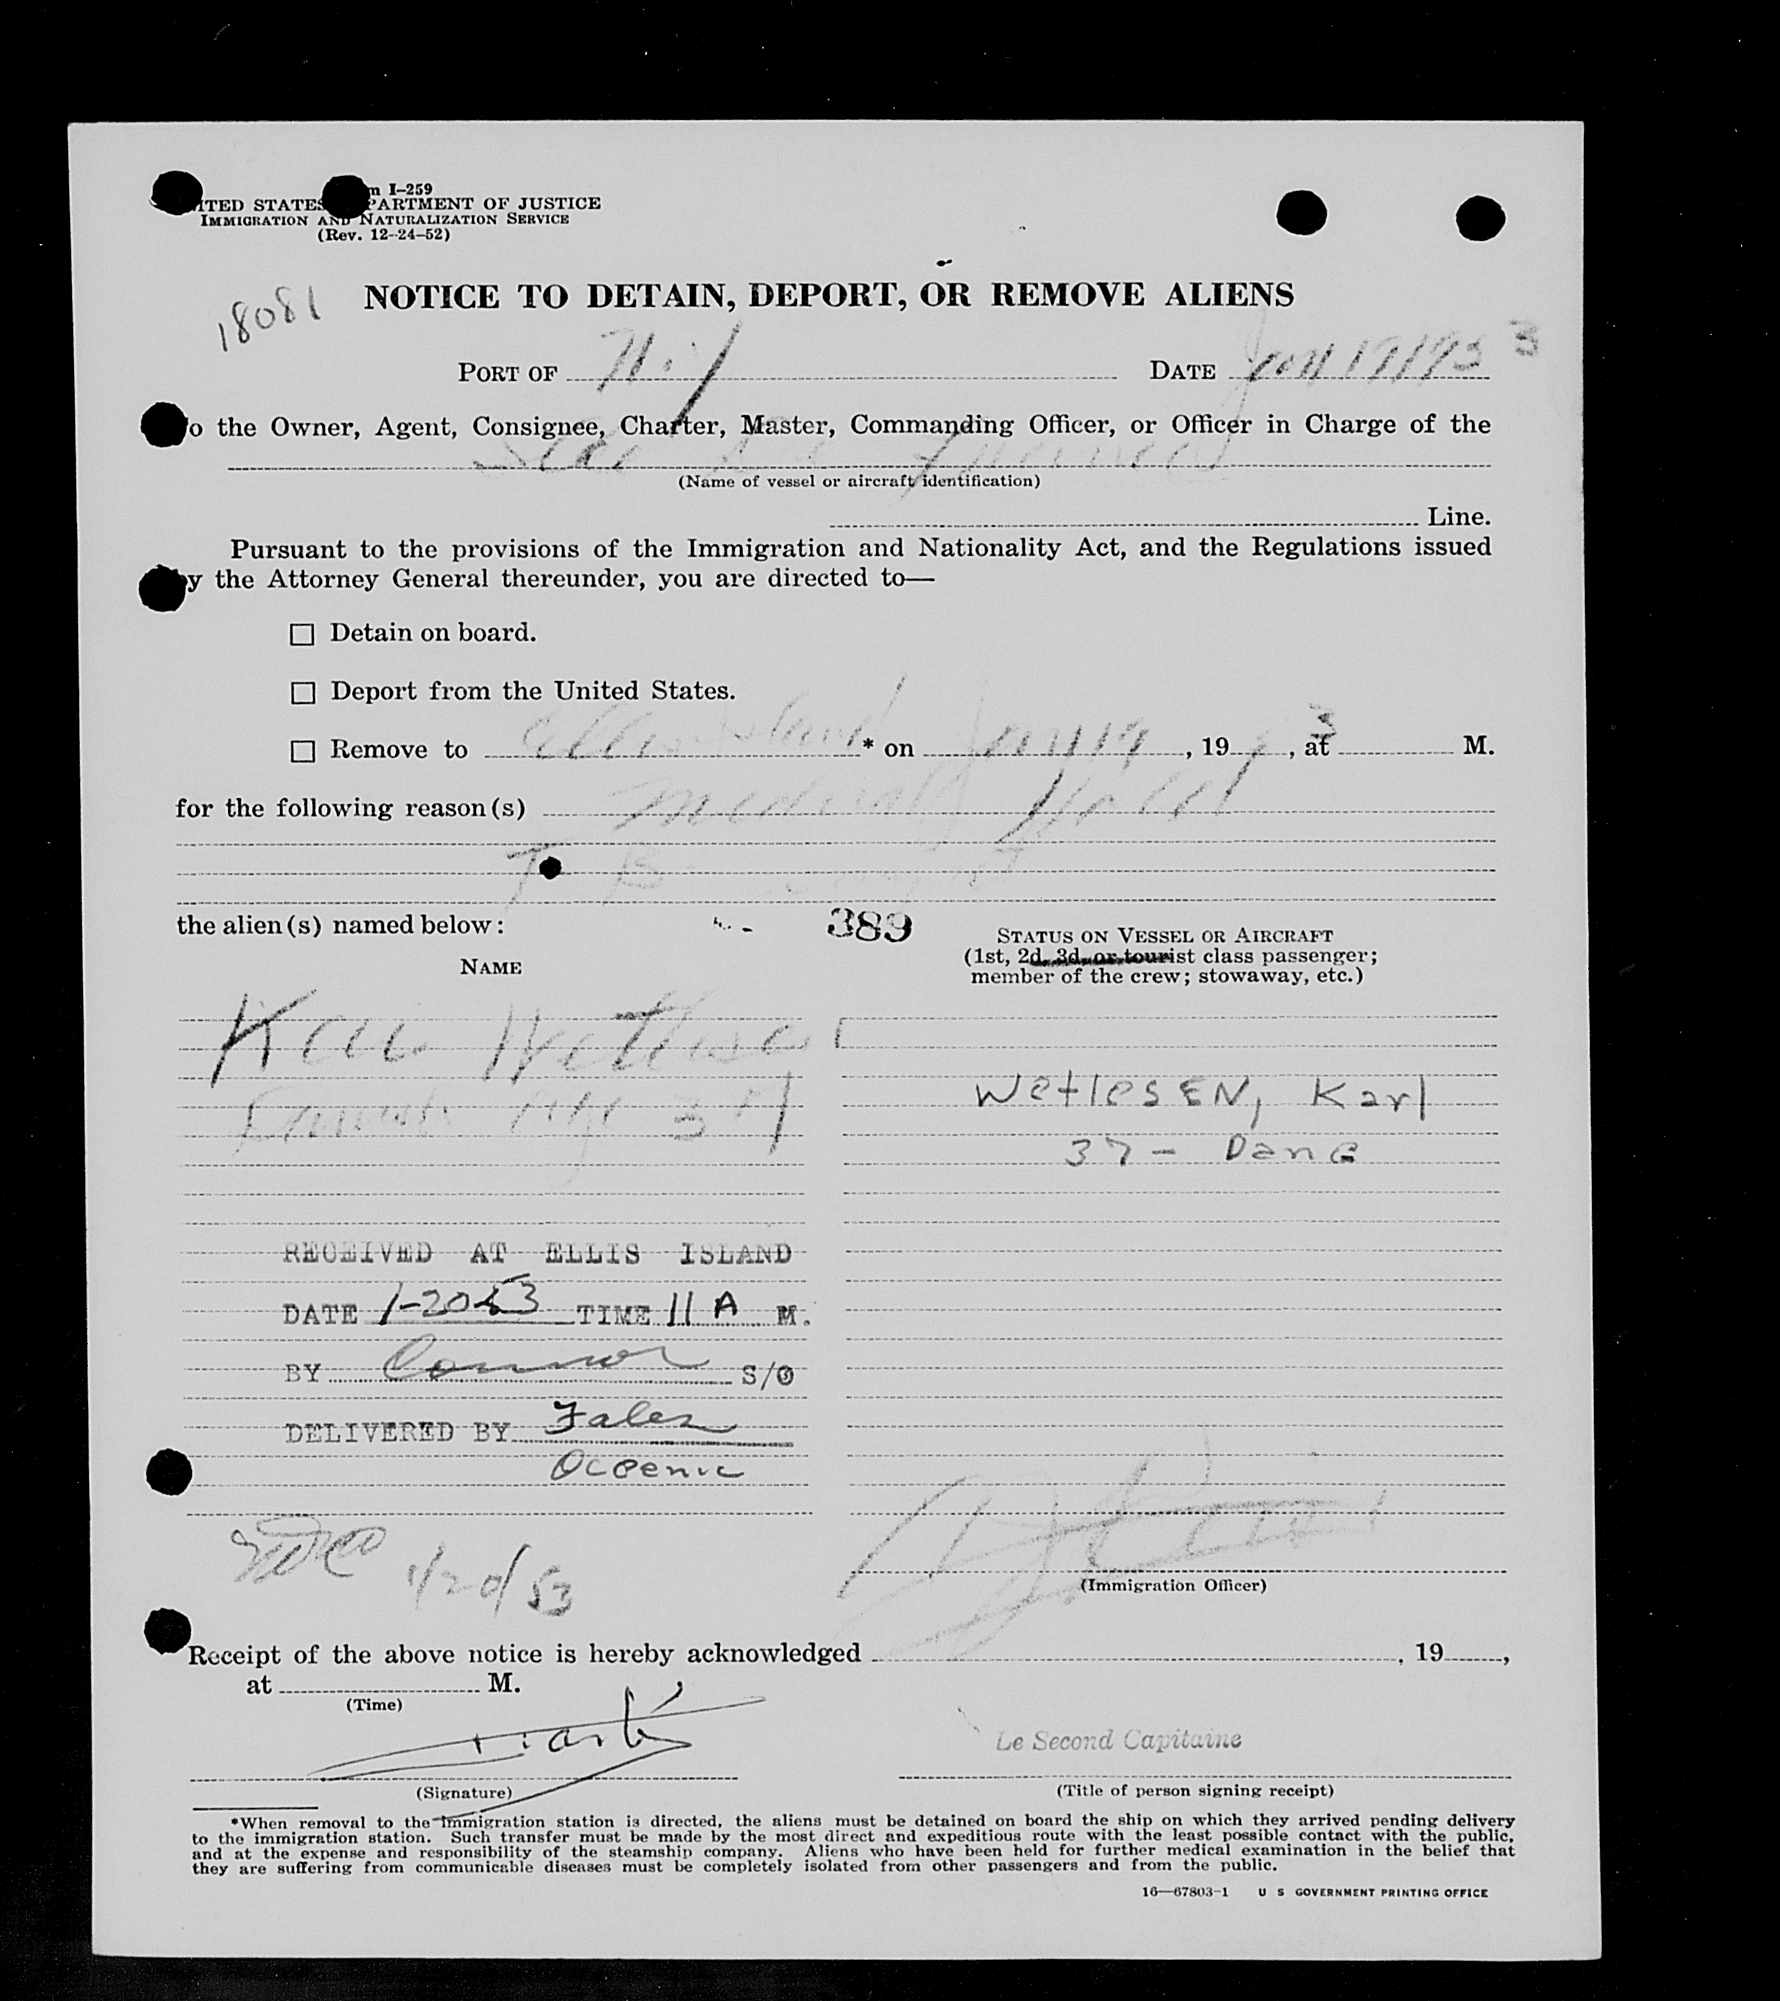 m I–259
ITED STATES PARTMENT OF JUSTICE
IMMIGRATION AND NATURALIZATION SERVICE
(Rev. 12–24–52)
18081
NOTICE TO DETAIN, DEPORT, OR REMOVE ALIENS
PORT OF N.Y DATE Jan 19 1953 3
o the Owner, Agent, Consignee, Charter, Master, Commanding Officer, or Officer in Charge of the
(Name of vessel or aircraft identification)
Line.
Pursuant to the provisions of the Immigration and Nationality Act, and the Regulations issued
y the Attorney General thereunder, you are directed to—
☐ Detain on board.
☐ Deport from the United States.
☐ Remove to Ellis Island * on Jan 19, 19 , at M.
3
for the following reason(s) Medical Hold
T B
the alien(s) named below: 389
STATUS ON VESSEL OR AIRCRAFT
(1st, 2d, 3d, or tourist class passenger;
member of the crew; stowaway, etc.)
NAME
Wetlesen, Karl
Age 37
37 – Dane
RECEIVED AT ELLIS ISLAND
DATE 1-20-53 TIME 11 A M.
BY Connor S/O
DELIVERED BY Fales
Oceanic
1/20/53
(Immigration Officer)
Receipt of the above notice is hereby acknowledged , 19 ,
at M.
(Time)
Le Second Capitaine
(Signature) (Title of person signing receipt)
*When removal to the immigration station is directed, the aliens must be detained on board the ship on which they arrived pending delivery
to the immigration station. Such transfer must be made by the most direct and expeditious route with the least possible contact with the public,
and at the expense and responsibility of the steamship company. Aliens who have been held for further medical examination in the belief that
they are suffering from communicable diseases must be completely isolated from other passengers and from the public.
16—67803-1 U S GOVERNMENT PRINTING OFFICE